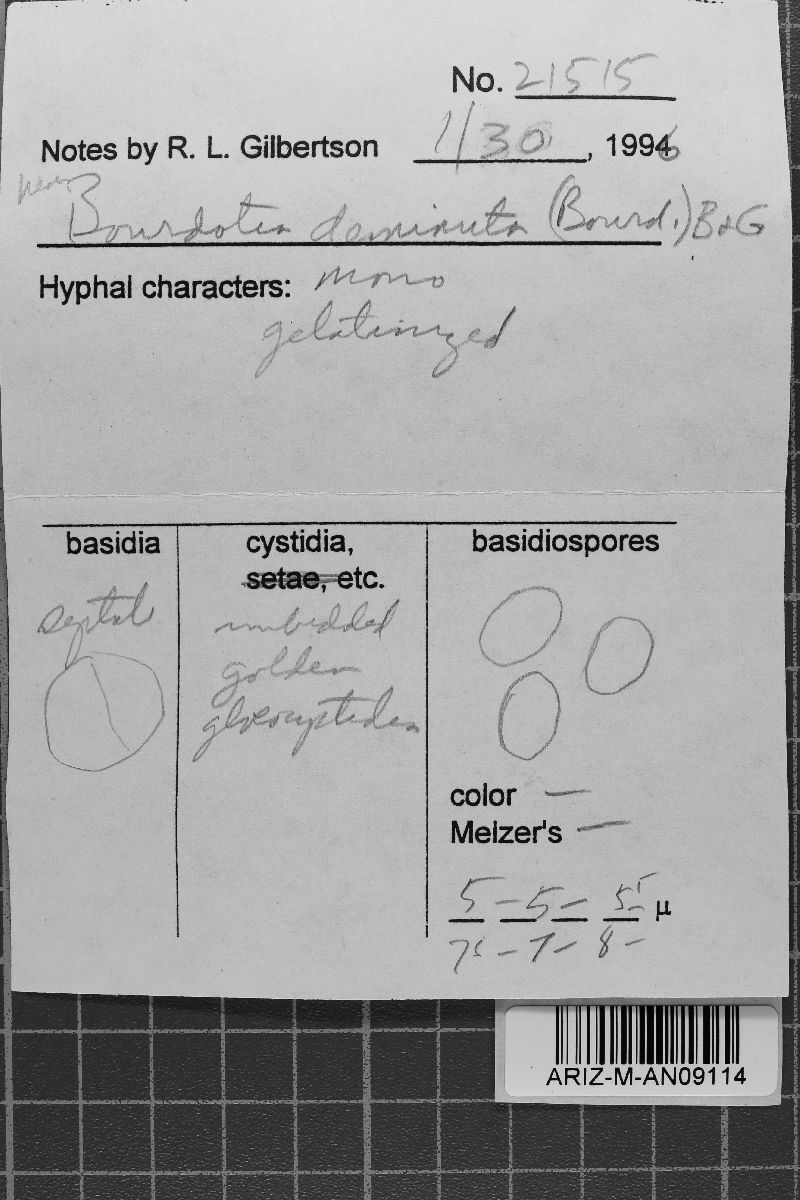 No. 21515
Notes by R. L. Gilbertson 1/30, 1996
near
Bourdotia deminuta (Bourd.) B&G
Hyphal characters: mono
gelatinized
basidia
cystidia,
setae, etc.
basidiospores
septate
imbedded
golden
gloeocystidia
color —
Melzer's —
5 – 5 – 5⁵ – µ
7⁵ – 7 – 8 –
ARIZ-M-AN09114